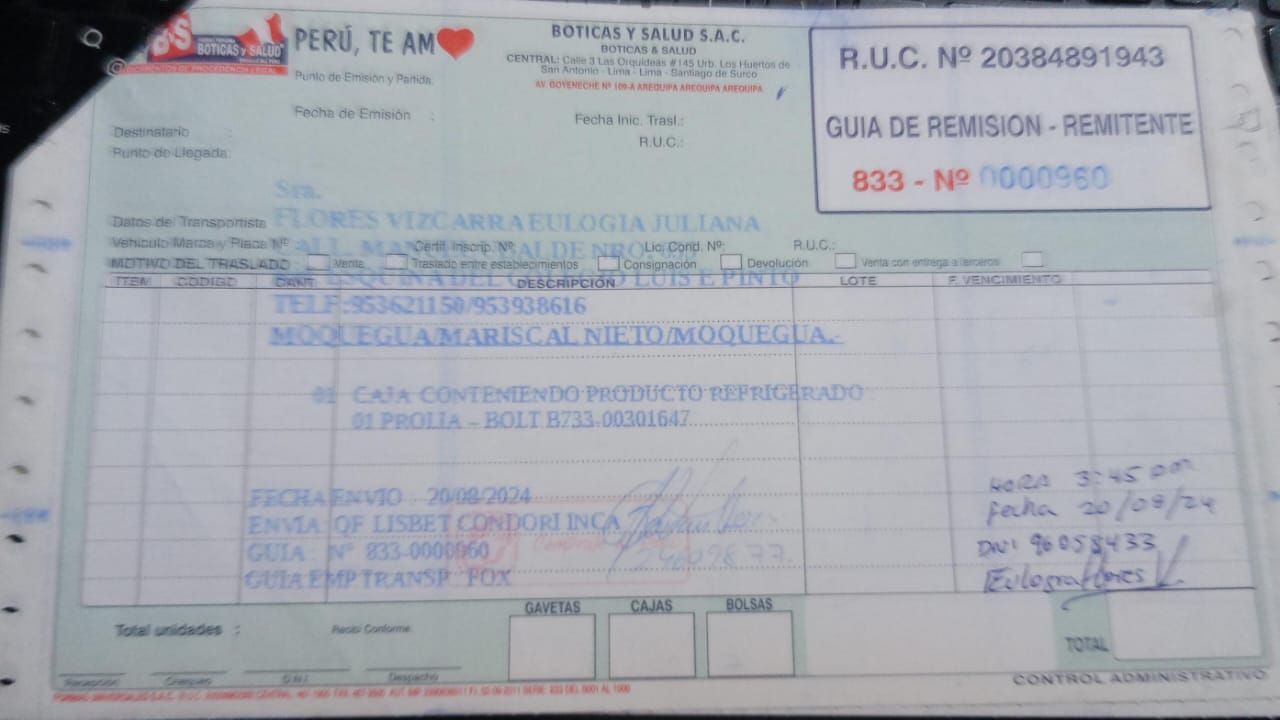 BS BOTICAS Y SALUD
PERÚ, TE AM
DOCUMENTOS DE PROCEDENCIA LEGAL
BOTICAS Y SALUD S.A.C.
BOTICAS & SALUD
CENTRAL: Calle 3 Las Orquideas #145 Urb. Los Huertos de
San Antonio - Lima - Lima - Santiago de Surco
AV. GOYENECHE Nº 109-A AREQUIPA AREQUIPA AREQUIPA
R.U.C. Nº 20384891943
GUIA DE REMISION - REMITENTE
833 - Nº 0000960
Punto de Emisión y Partida:
Fecha de Emisión :
Fecha Inic. Trasl.:
Destinatario :
R.U.C.:
Punto de Llegada:
Sra.
Datos del Transportista FLORES VIZCARRA EULOGIA JULIANA
Vehículo Marca y Placa Nº Certif. Inscrip. Nº: Lic. Cond. Nº: R.U.C.:
MOTIVO DEL TRASLADO Venta Traslado entre establecimientos Consignación Devolución Venta con entrega a terceros
LUIS E PINTO
ITEM CODIGO CANT. DESCRIPCIÓN LOTE F. VENCIMIENTO
TELF:953621150/953938616
MOQUEGUA/MARISCAL NIETO/MOQUEGUA.-
01 CAJA CONTENIENDO PRODUCTO REFRIGERADO
01 PROLIA – BOLT B733-00301647
FECHA ENVIO : 20/08/2024
ENVIA QF LISBET CONDORI INCA
GUIA : Nº 833-0000960
GUIA EMP TRANSP. FOX
HORA 3:45 pm
fecha 20/08/24
DNI 96058433
Eulogia flores
GAVETAS CAJAS BOLSAS
Total unidades :
Recibí Conforme
TOTAL
Recepción Chequeo D.N.I. Despacho
CONTROL ADMINISTRATIVO